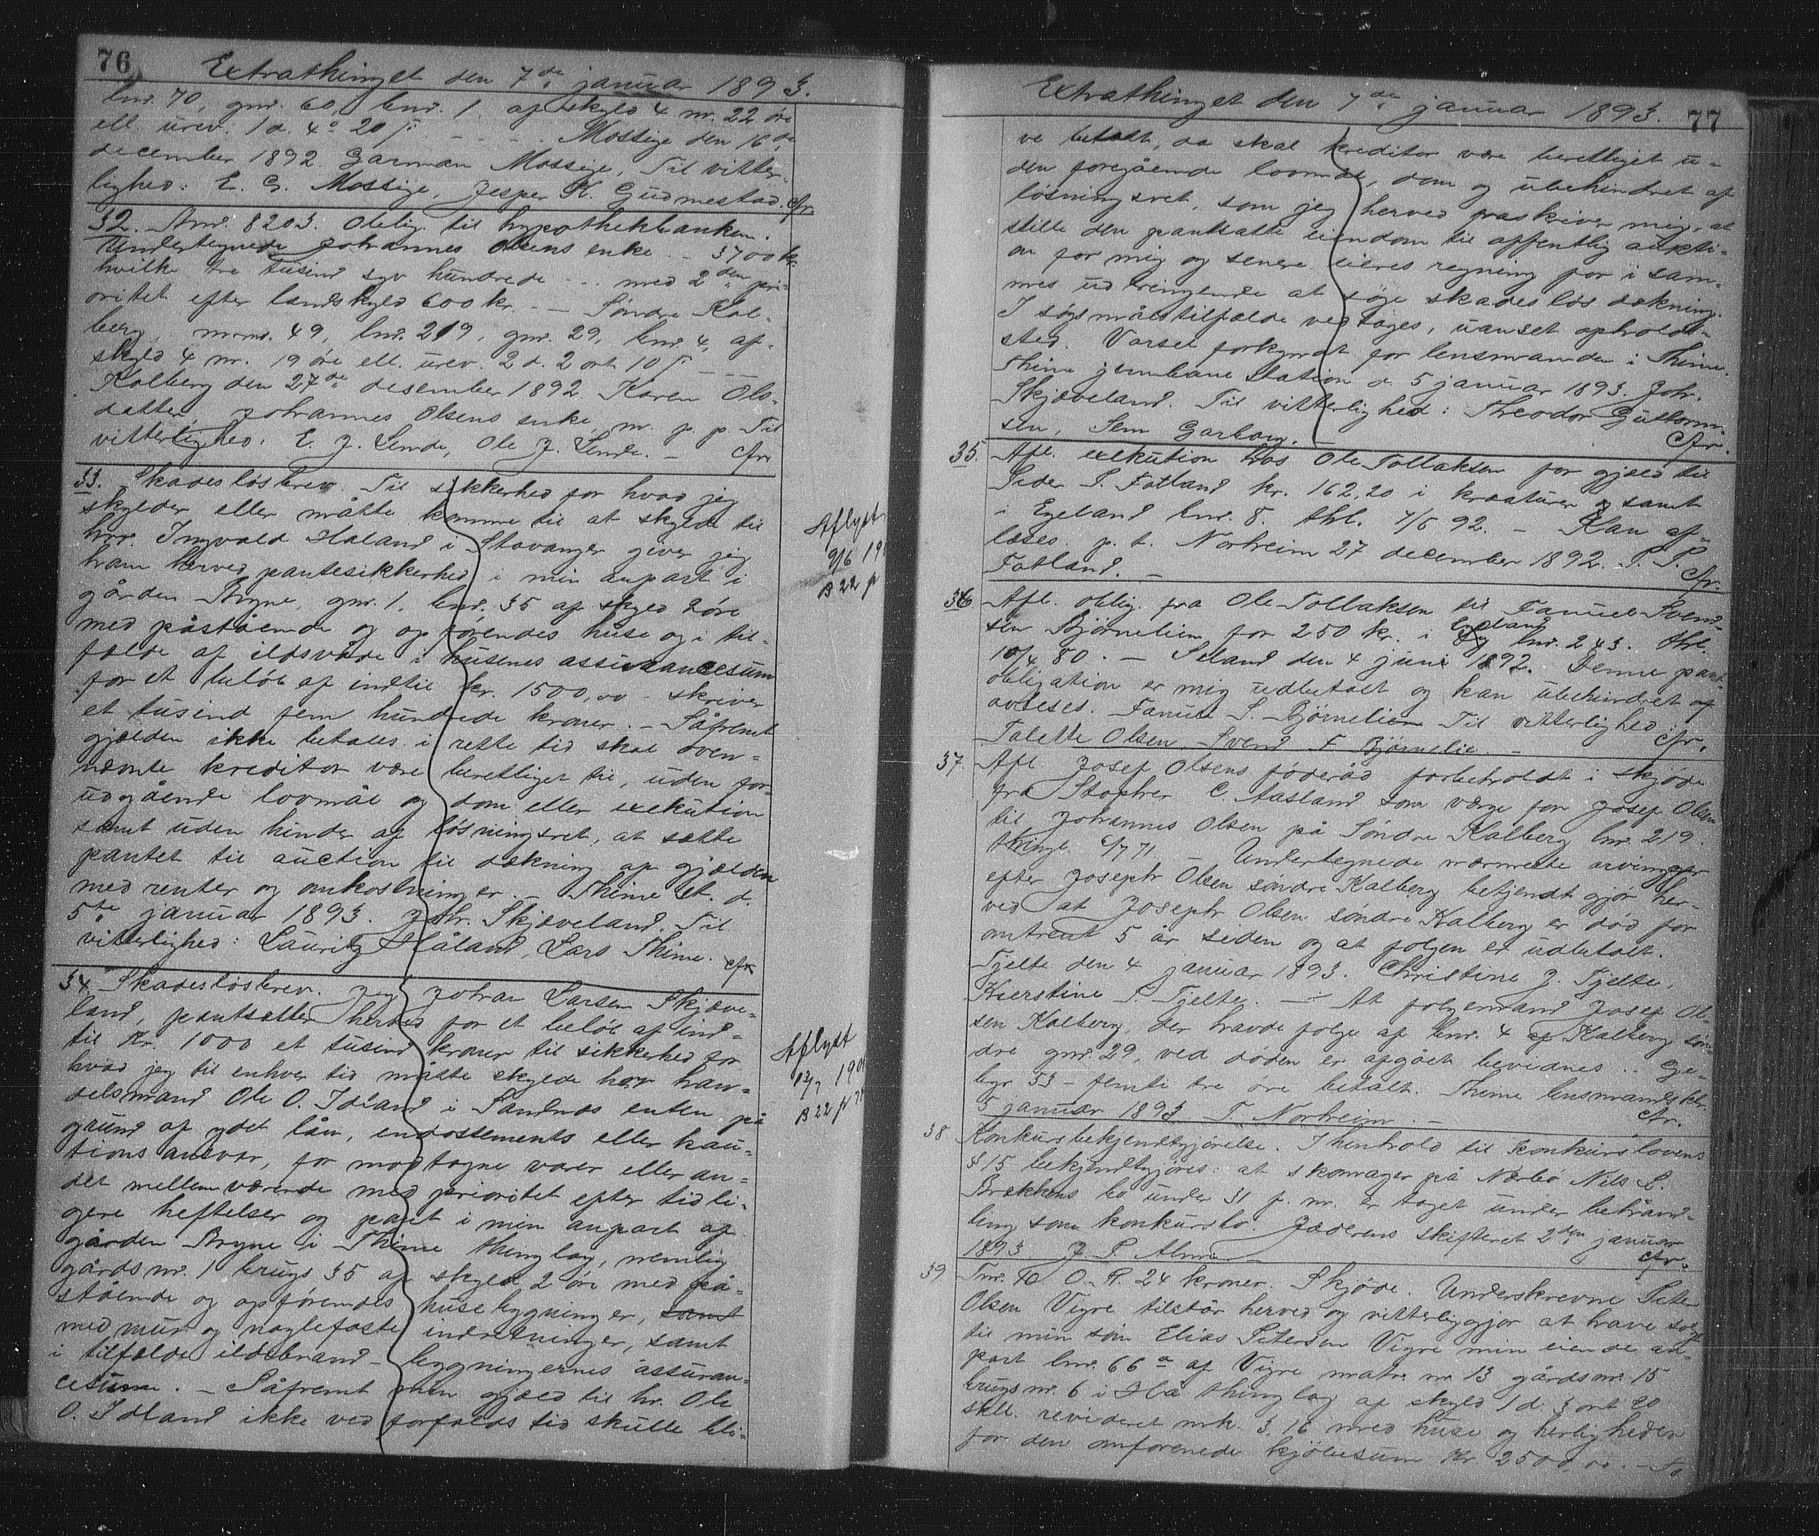 76
Extrathinget den 7de januar 1893.
lnr. 70, gnr. 60, bnr. 1. af skyld 4 m. 22 øre
ell. urev. 1 d. 4 o 20 s. - - - Mossige den 16de
december 1892. Garman Mossige, Til vitter-
lighed: E. G. Mossige, Jesper K. Gudmestad. cfr.
32. Anr. 8203. Oblig. til hypothekbanken.
Undertegnede Johannes Olsens enke - 3700 kr
hvilke tre tusind syv hundrede - - - med 2den pri-
oritet efter landskyld 600 kr. - Søndre Kal-
berg, mnr. 49, lnr. 219, gnr. 29, bnr. 4, af
skyld 4 m. 19 øre ell. urev. 2 d. 2 ort 10 s - -
Kalberg den 27de desember 1892. Karen Ols-
datter, Johannes Olsens enke, m. p. p. Til
vitterlighed: E. J. Lende, Ole J. Lende. - cfr.
33. Skadesløsbrev. Til sikkerhed for hvad jeg
skylder eller måtte komme til at skylde til
hrr. Ingvald Haland i Stavanger giver jeg
ham herved pantesikkerhed i min anpart i
gården Bryne, gnr. 1, bnr. 35 af skyld 2 øre
med påstående og opførendes huse og i til-
fælde af ildsvåde i husenes assurancesum
for et beløb af indtil kr. 1500,00 - skriver
et tusind fem hundrede kroner. - Såfremt
gjælden ikke betales i rette tid skal oven-
nævnte kreditor være berettiget til, uden for-
udgående lovmål og dom eller exekution
samt uden hinder af løsningsret, at sætte
pantet til auction til dækning af gjælden
med renter og omkostninger. - Thime st. d.
5te januar 1893. Johr. Skjæveland. Til
vitterlighed: Lauritz Håland, Lars Thime. cfr
Aflyst
9/6 19
B 22 p
34. Skadesløsbrev. Jeg Johan Larsen Skjæve-
land, pantsætter herved for et beløb af ind-
til Kr. 1000 et tusind kroner til sikkerhed for
hvad jeg til enhver tid måtte skylde herr han-
delsmand Ole O. Idland i Sandnæs enten på
grund af ydet lån, endossements eller kau-
tionsansvar, for modtagne varer eller an-
det mellemværende med prioritet efter tidli-
gere heftelser og pant i min anpart af
gården Bryne i Thime thinglag, nemlig
gårds nr. 1 brugs 35 af skyld 2 øre med på-
stående og opførendes husebygninger, samt
med mur og naglefaste indretninger, samt
i tilfælde ildebrand - bygningernes assuran-
cesum. - Såfremt min gjæld til hr. Ole
O. Idland ikke ved forfalds tid skulle bli-
Aflyst
12/7 190
B 22 p
Extrathinget den 7de januar 1893. 77
ve betalt, da skal kreditor være berettiget u-
den foregående lovmål, dom og ubehindret af
løsningsret, som jeg herved fraskriver mig, at
stille den pantsatte eiendom til offentlig aukti-
on for mig og senere eieres regning for i sam-
mes udbringende at søge skadesløs dækning.
I søgsmålstilfælde vedtages, uanset opholds-
sted. Varsel forkyndt for lensmanden i Thime.
Thime jernbane station d. 5 januar 1893. Johr.
Skjæveland. Til vitterlighed: Theodor Guttorm-
sen, Sem Garborg. - cfr.
35. Afl. exekution hos Ole Tollaksen for gjæld til
Peder P. Fotland kr. 162,20 i kreaturer samt
i Egeland lnr. 8. thl. 7/5 92. - Kan af-
læses. p. t. Norheim 27 december 1892. P. P.
Fotland. - cfr.
36. Afl. oblig. fra Ole Tollaksen til Fanuel Svend-
sen Bjørnelien for 250 kr. i Egeland lnr. 243. thl.
10/4 80. - Seland den 4 juni 1892. Denne pant-
obligation er mig udbetalt og kan ubehindret af
avleses. Fanuel S. Bjørnelien Til vitterlighed: cfr.
Talette Olsen. Svend F. Bjørnelie. -
37. Afl. Josef Olsens føderåd forbeholdt i skjøde
fra Stopher C. Aasland som værge for Josef Olsen
til Johannes Olsen på Søndre Kalberg lnr. 219.
thingl. 6/7 71 - Undertegnede nærmeste arvinger
efter Joseph Olsen søndre Kalberg bekjendt gjør her-
ved at Joseph Olsen søndre Kalberg er død for
omtrent 5 år siden og at folgen er udbetalt.
Tjelte den 4 januar 1893. Christine J. Tjelte,
Kierstine T. Tjelte. - At folgemand Josef Ol-
sen Kalberg, der havde folge af bnr. 4 af Kalberg søn-
dre gnr. 29, ved døden er afgået bevidnes. . Ge-
byr 53 - femti tre øre betalt. Thime lensmandsktr.
5 januar 1893. T. Norheim. - cfr.
38 Konkursbekjendtgjørelse. I henhold til konkurslovens
§ 15 bekjendtgjøres: at skomager på Nærbø Nils L.
Brekkens bo under 31 f. m. er taget under behand-
ling som konkursbo. Jæderens skifteret 2den januar
1893. J. P. Alme cfr.
39 Tnr. 40 O. R. 24 kroner. Skjøde. Underskrevne Peter
Olsen Vigre tilstår herved og vitterliggjør at have solgt
til min søn Elias Petersen Vigre min eiende an-
part lnr. 66 a af Vigre matr. nr 13 gårds nr. 15
brugs nr. 6 i Hå thinglag af skyld 1 d. 3 ort 20
skil. revideret mrk. 3,16 med huse og herligheder
for den omforenede kjøbesum Kr 2500,00. - to